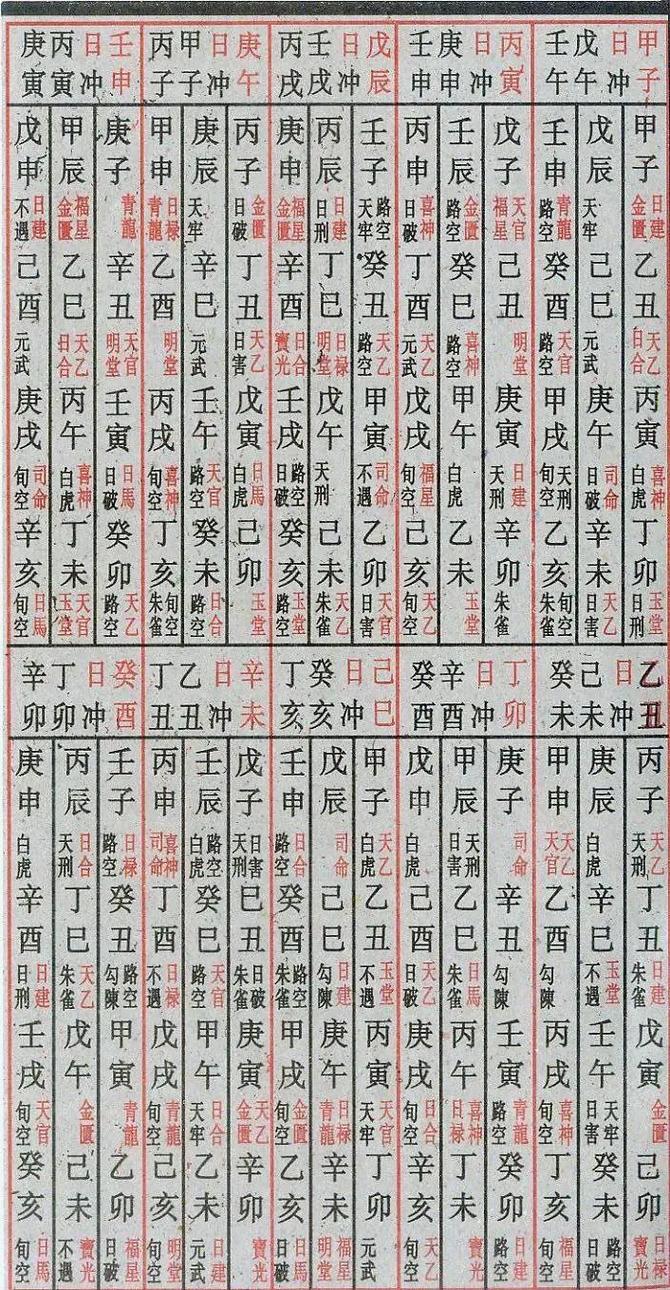 甲子日冲戊午壬午
甲子日建金匱乙丑天乙日合丙寅喜神白虎丁卯玉堂日刑
戊辰天牢己巳元武庚午司命日破辛未天乙日害
壬申青龍路空癸酉天官路空甲戌天刑旬空乙亥旬空朱雀
丙寅日冲庚申壬申
戊子天官福星己丑明堂庚寅日建天刑辛卯朱雀
壬辰金匱路空癸巳喜神路空甲午白虎乙未玉堂
丙申喜神日破丁酉天乙元武戊戌福星旬空己亥天乙旬空
戊辰日冲壬戌丙戌
壬子路空天牢癸丑天乙路空甲寅司命不遇乙卯天官日害
丙辰日建日刑丁巳日禄明堂戊午天刑己未天乙朱雀
庚申福星金匱辛酉日合寶光壬戌路空日破癸亥玉堂路空
庚午日冲甲子丙子
丙子金匱日破丁丑天乙日害戊寅日馬白虎己卯玉堂
庚辰天牢辛巳元武壬午天官路空癸未日合路空
甲申日禄青龍乙酉明堂丙戌喜神旬空丁亥旬空朱雀
壬申日冲丙寅庚寅
庚子青龍辛丑天官明堂壬寅日馬日破癸卯天乙路空
甲辰福星金匱乙巳天乙日合丙午喜神白虎丁未天官玉堂
戊申日建不遇己酉元武庚戌司命旬空辛亥日馬旬空
乙丑日冲己未癸未
丙子天乙天刑丁丑日建朱雀戊寅金匱己卯日禄寶光
庚辰白虎辛巳玉堂不遇壬午天牢日害癸未路空日破
甲申天乙天官乙酉勾陳丙戌喜神旬空丁亥福星旬空
丁卯日冲辛酉癸酉
庚子司命辛丑勾陳壬寅青龍路空癸卯日建路空
甲辰天刑日害乙巳日馬朱雀丙午喜神日禄丁未寶光
戊申白虎己酉天乙日破庚戌日合旬空辛亥天乙旬空
己巳日冲癸亥丁亥
甲子天乙白虎乙丑玉堂不遇丙寅天官天牢丁卯元武
戊辰司命己巳日建勾陳庚午日禄青龍辛未福星明堂
壬申日合路空癸酉路空朱雀甲戌金匱旬空乙亥日馬日破
辛未日冲乙丑丁丑
戊子日害天刑己丑日破朱雀庚寅天乙金匱辛卯寶光
壬辰路空白虎癸巳天官路空甲午日合天牢乙未日建元武
丙申喜神司命丁酉日禄不遇戊戌青龍旬空己亥明堂旬空
癸酉日冲丁卯辛卯
壬子日禄路空癸丑路空勾陳甲寅青龍乙卯福星日破
丙辰日合天刑丁巳天乙朱雀戊午金匱己未寶光不遇
庚申白虎辛酉日建日刑壬戌天官旬空癸亥日馬旬空